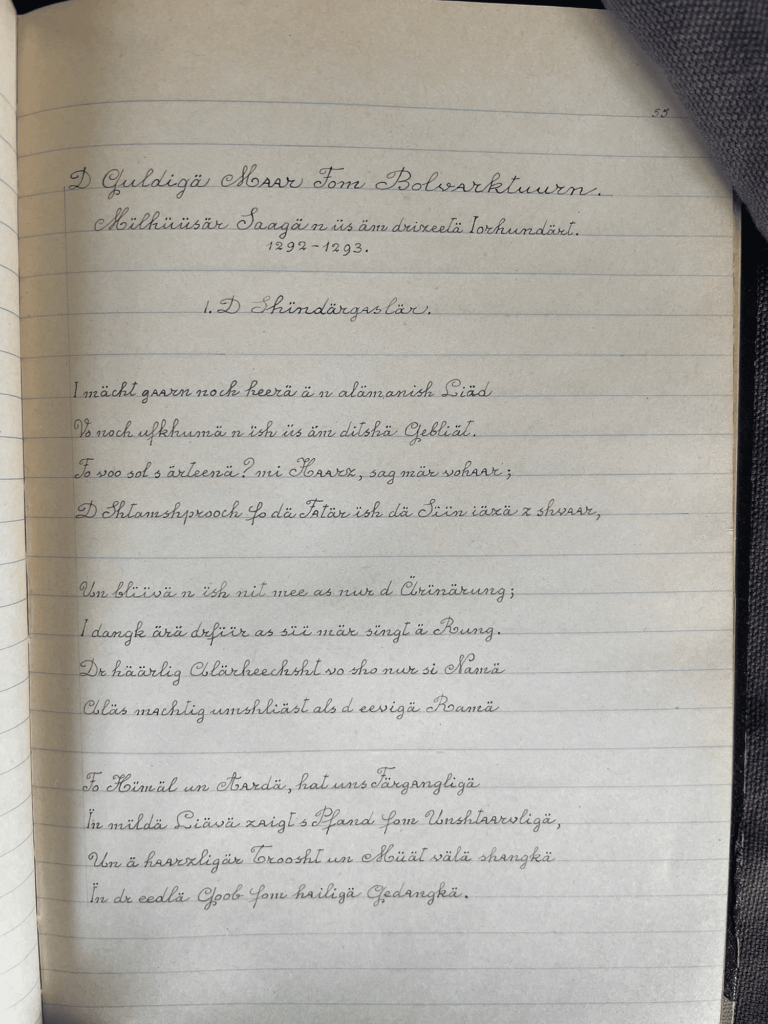 53
D Guldigä Maar Fom Bolvarktuurn.
Milhüüsär Saagä n üs äm drizeetä Iorhundärt.
1292-1293.
1. D Shindärgaslär.
I mächt gaarn noch heerä ä n alämanish Liäd
Vo noch ufkhumä n ish üs äm ditshä Gebliät.
Fo voo sol s ärteenä? mi Haarz, sag mär vohaar;
D Shtamshprooch fo dä Fatär ish dä Siin iärä z shvaar,
Un bliivä n ish nit mee as nur d Ärinärung;
I dangk ärä drfiir as sii mär singt ä Rung.
Dr häärlig Alärheechsht vo sho nur si Namä
Aläs machtig umshliäst als d eevigä Ramä
Fo Himäl un Aardä, hat uns Färgangligä
In mildä Liävä zaigt s Pfand fom Unshtaarvligä,
Un ä haarzligär Troosht un Müät välä shangkä
In dr eedlä Goob fom hailigä Gedangkä.